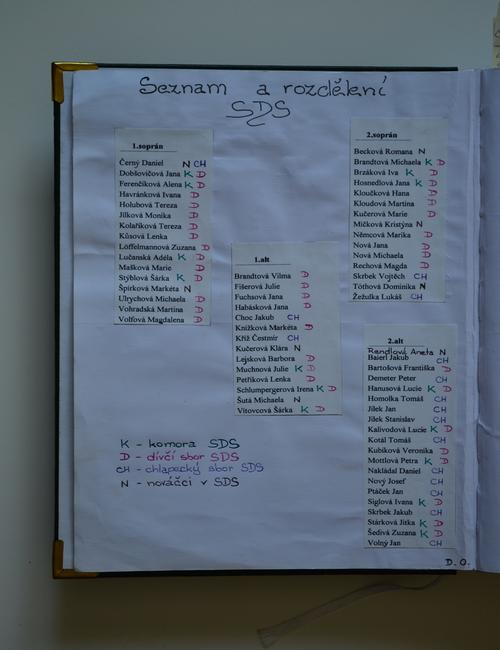 Seznam a rozdělení
SDS
1.soprán
Černý Daniel N CH
Dobšovičová Jana K D
Ferenčíková Alena K D
Havránková Ivana D
Holubová Tereza D
Jílková Monika D
Kolaříková Tereza D
Kůsová Lenka D
Löffelmannová Zuzana D
Lučanská Adéla K D
Mašková Marie D
Stýblová Šárka K D
Špirková Markéta N
Ulrychová Michaela D
Vohradská Martina D
Volfová Magdalena D
1.alt
Brandtová Vilma D
Fišerová Julie D
Fuchsová Jana D
Habásková Jana D
Choc Jakub CH
Knížková Markéta D
Kříž Čestmír CH
Kučerová Klára N
Lejsková Barbora D
Muchnová Julie K D
Petříková Lenka D
Schlumpergerová Irena K D
Šutá Michaela N
Vítovcová Šárka K D
2.soprán
Becková Romana N
Brandtová Michaela K D
Brzáková Iva K D
Hosnedlová Jana K D
Kloučková Hana D
Kloudová Martina D
Kučerová Marie D
Mičková Kristýna N
Němcová Marika D
Nová Jana D
Nová Michaela D
Rechová Magda D
Skrbek Vojtěch CH
Tóthová Dominika N
Žežulka Lukáš CH
2.alt
Rendlová Aneta N
Baierl Jakub CH
Bartošová Františka D
Demeter Peter CH
Hanusová Lucie K D
Homolka Tomáš CH
Jílek Jan CH
Jílek Stanislav CH
Kalivodová Lucie K D
Kotál Tomáš CH
Kubíková Veronika D
Mottlová Petra K D
Nakládal Daniel CH
Nový Josef CH
Ptáček Jan CH
Siglová Ivana K D
Skrbek Jakub CH
Stárková Jitka K D
Šedivá Zuzana K D
Volný Jan CH
K - komora SDS
D - dívčí sbor SDS
CH - chlapecký sbor SDS
N - nováčci v SDS
D.O.